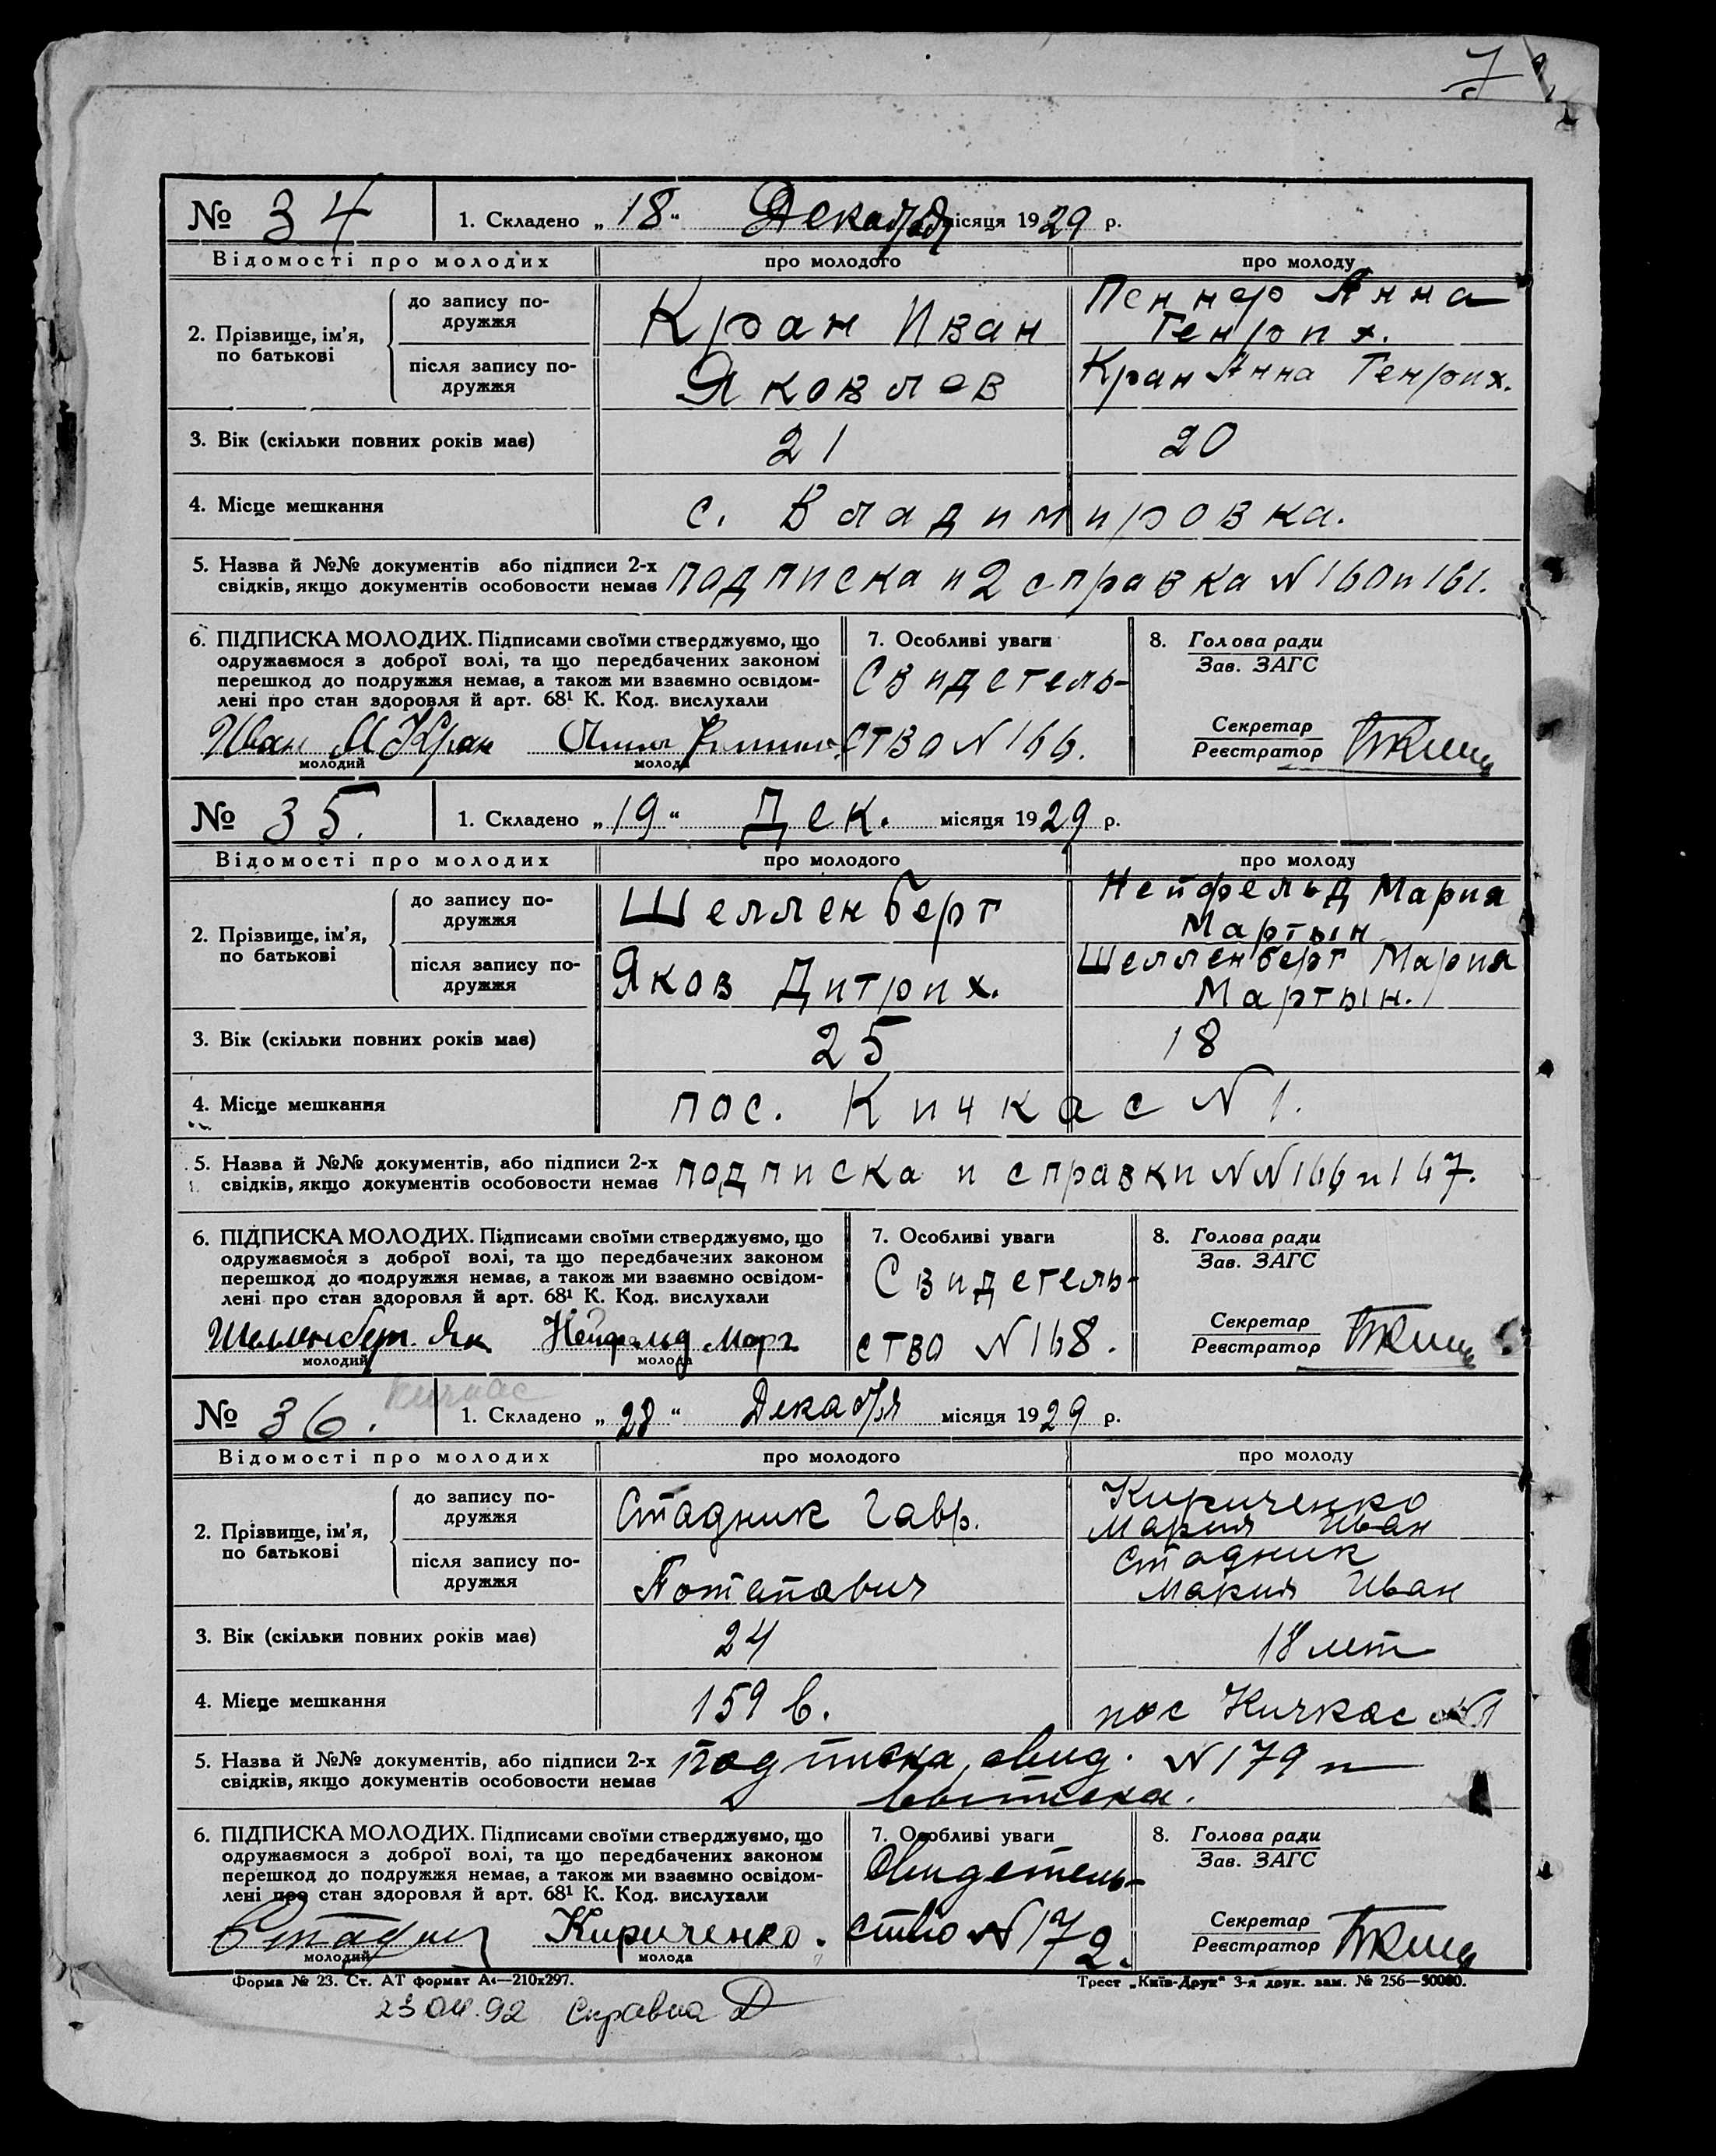 № 34 1. Складено „18“ Декабря місяця 1929 р.
Відомості про молодих про молодого про молоду
2. Прізвище, ім’я, по батькові
до запису подружжя
Кран Иван
Пеннер Анна
Генрих.
після запису подружжя
Яковлев
Кран Анна Генрих.
3. Вік (скільки повних років має) 21 20
4. Місце мешкання с. Владимировка.
5. Назва й №№ документів або підписи 2-х
свідків, якщо документів особовости немає подписка и 2 справка N 160 и 161.
6. ПІДПИСКА МОЛОДИХ. Підписами своїми стверджуємо, що
одружаємося з доброї волі, та що передбачених законом
перешкод до подружжя немає, а також ми взаємно освідом-
лені про стан здоровля й арт. 68¹ К. Код. вислухали
Иван Кран Анна
молодий молода
7. Особливі уваги
Свидетель-
ство N 166.
8. Голова ради
Зав. ЗАГС
Секретар
Реєстратор
№ 35. 1. Складено „19“ Дек. місяця 1929 р.
Відомості про молодих про молодого про молоду
2. Прізвище, ім’я, по батькові
до запису подружжя
Шелленберг
Нейфельд Мария
Мартын
після запису подружжя
Яков Дитрих.
Шелленберг Мария
Мартын.
3. Вік (скільки повних років має) 25 18
4. Місце мешкання пос. Кичкас N 1.
5. Назва й №№ документів, або підписи 2-х
свідків, якщо документів особовости немає подписка и справки NN 166 и 167.
6. ПІДПИСКА МОЛОДИХ. Підписами своїми стверджуємо, що
одружаємося з доброї волі, та що передбачених законом
перешкод до подружжя немає, а також ми взаємно освідом-
лені про стан здоровля й арт. 68¹ К. Код. вислухали
Шелленберг. Як Нейфельд Мар
молодий молода
7. Особливі уваги
Свидетель-
ство N 168.
8. Голова ради
Зав. ЗАГС
Секретар
Реєстратор
Кичкас
№ 36. 1. Складено „28“ Декабря місяця 1929 р.
Відомості про молодих про молодого про молоду
2. Прізвище, ім’я, по батькові
до запису подружжя
Стадник Гавр.
Кириченко
Мария Иван
після запису подружжя
Потапович
Стадник
Мария Иван
3. Вік (скільки повних років має) 24 18 лет
4. Місце мешкання 159 в. пос Кичкас N1
5. Назва й №№ документів, або підписи 2-х
свідків, якщо документів особовости немає подписка, свид. N 179 и
выписка.
6. ПІДПИСКА МОЛОДИХ. Підписами своїми стверджуємо, що
одружаємося з доброї волі, та що передбачених законом
перешкод до подружжя немає, а також ми взаємно освідом-
лені про стан здоровля й арт. 68¹ К. Код. вислухали
Стадник Кириченко.
молодий молода
7. Особливі уваги
Свидетель-
ство N 172.
8. Голова ради
Зав. ЗАГС
Секретар
Реєстратор
Форма № 23. Ст. АТ формат А4—210х297. Трест „Київ-Друк“ 3-я друк. зам. № 256—50000.
23 04.92 Справка